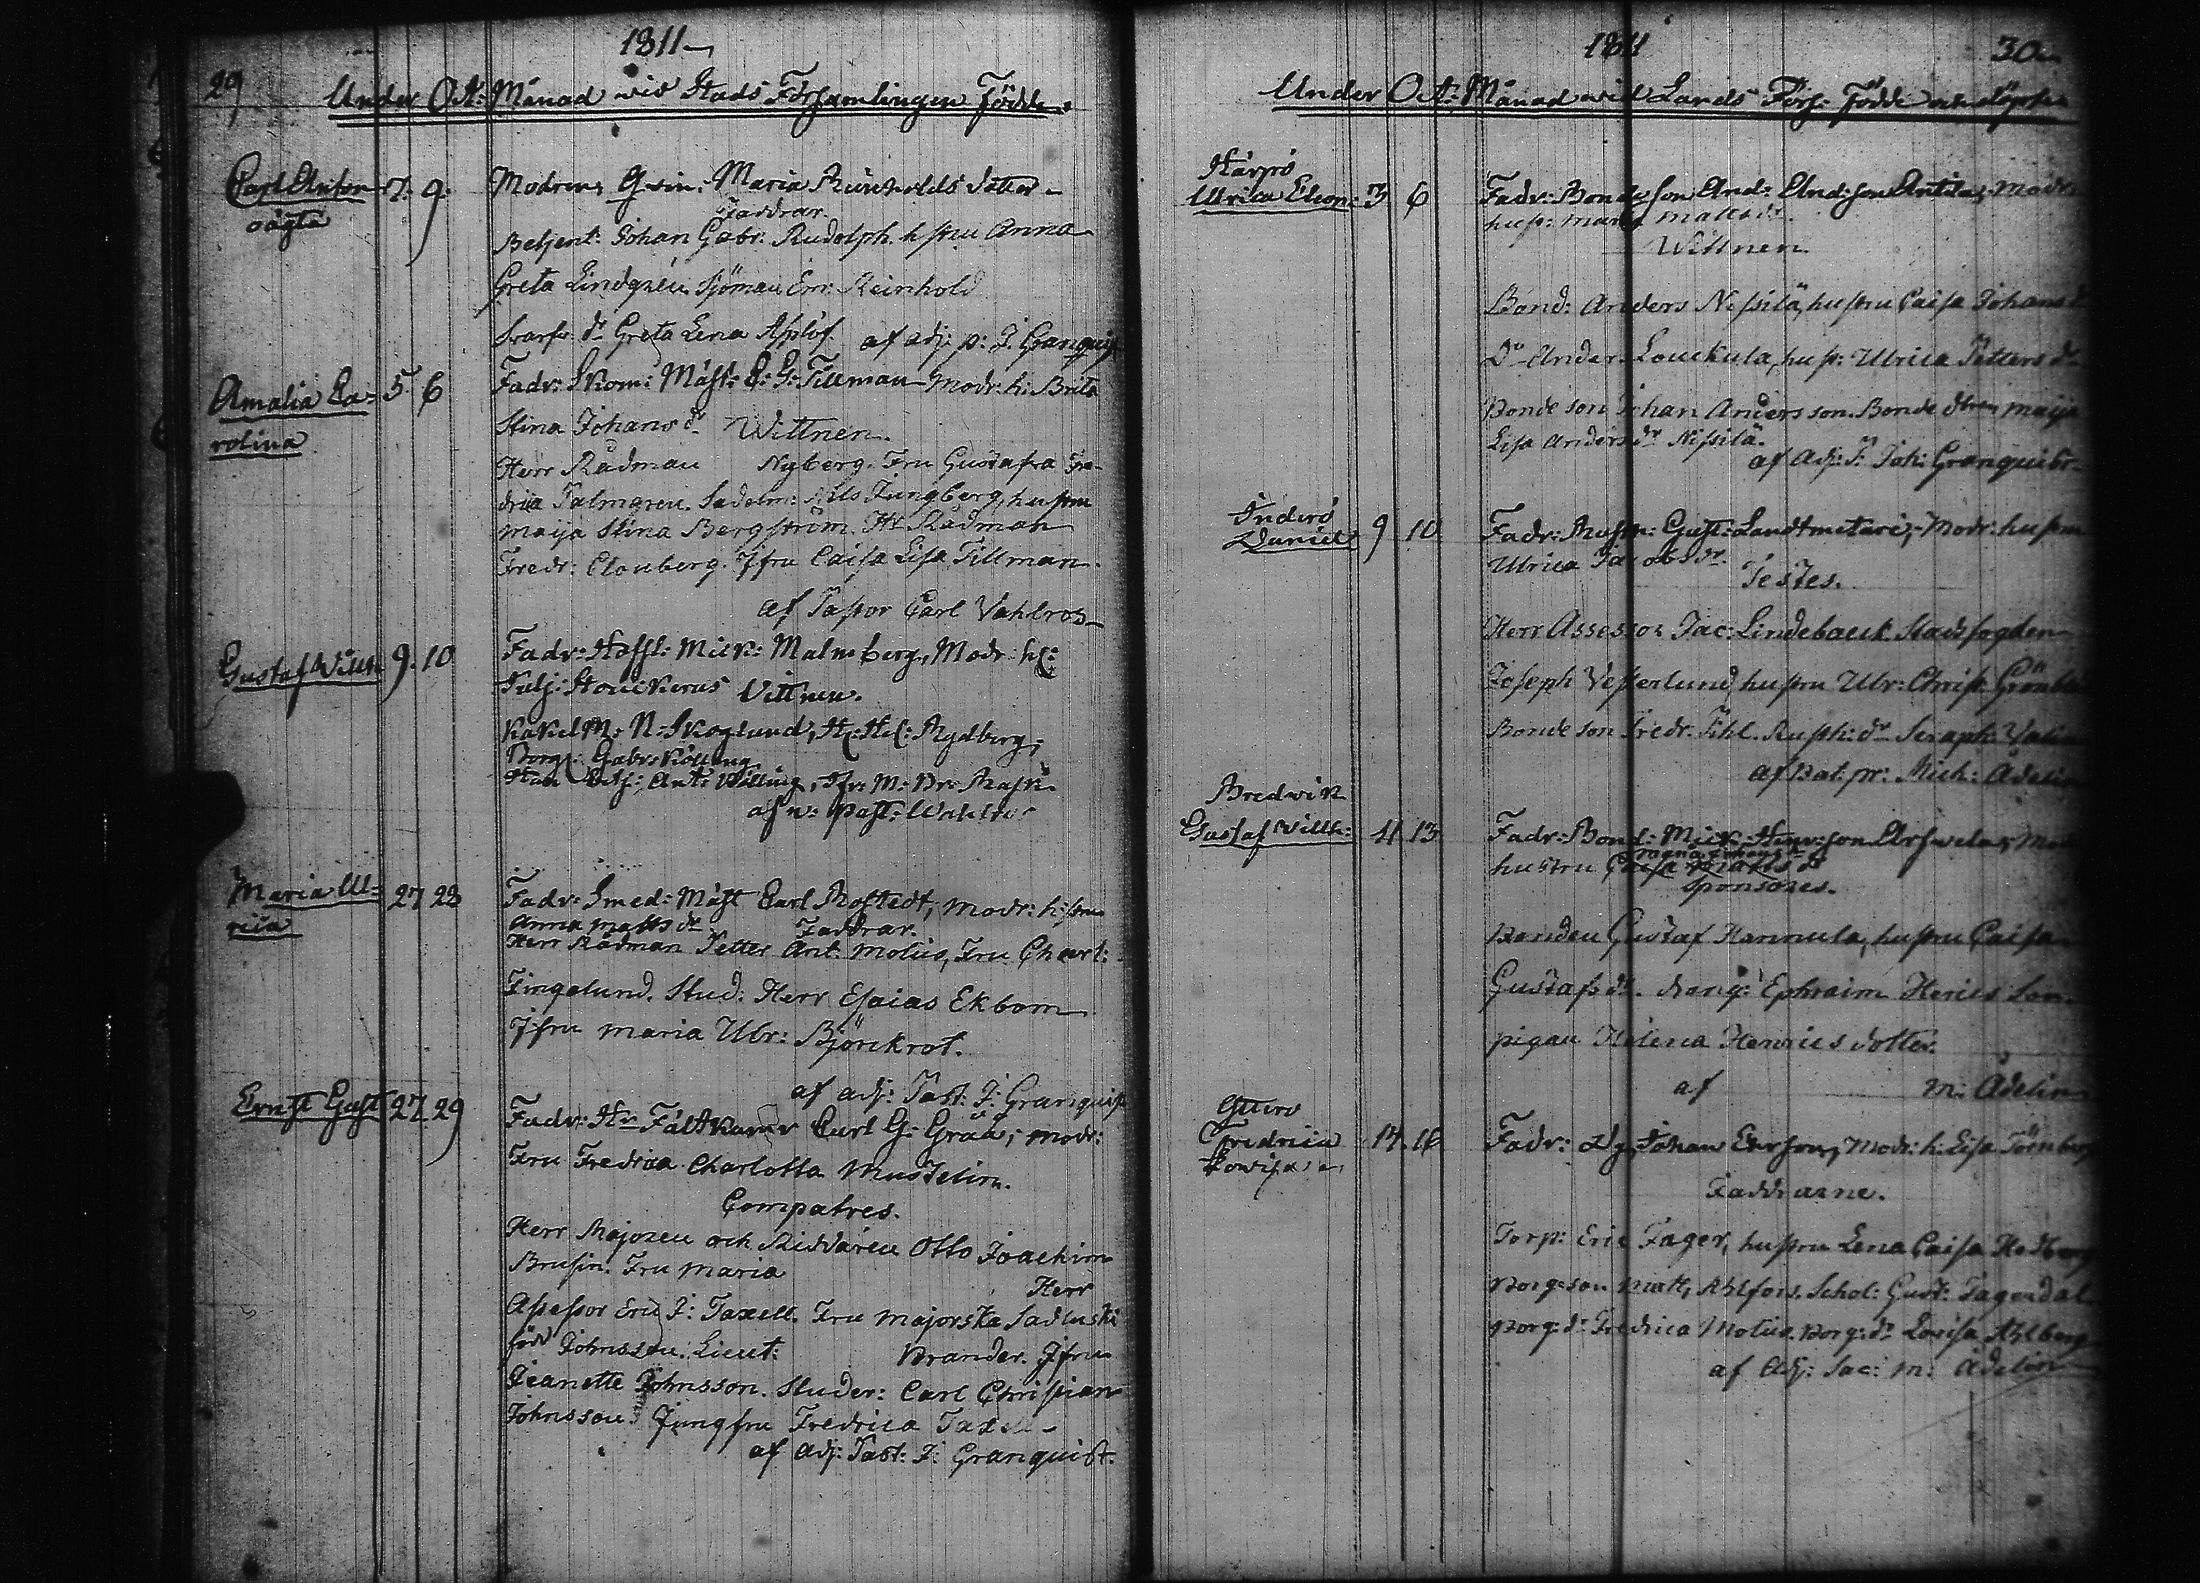 1811
29
Under Oct: Månad vid Stads Församlingen Födde
Carl Anton 7. 9. Modren Maria Reinholds dotter
oägta
Faddrar.
Betjent: Johan Gabr: Rudolph. hustru Anna
Greta Lindgren. Sjöman Em: Reinhold
dr Greta Lena Asplöf. af adj: p: J. Granquist
Amalia Ca= 5. 6 Fadr: Skom: Mäst: E: G: Tillman Modr: h: Brita
rolina
Stina Johans dr. Wittnen.
Herr Rådman Nyberg. Fru Gustafva Fre-
drica Palmgren. Sadelm: Nils Ljungberg, hustru
Maija Stina Bergström. Hr Rådman
Fredr: Clouberg. Jfru Caisa Lisa Tillman.
af Pastor Carl Vahlroos
Gustaf Wilh 9. 10 Fadr: Mick: Malmberg, Modr: h:
Julj: Wittnen.
N: Skoglund, Rydberg;
Borg: Gabr:
Ant: Jfr: M:
af v: past: Wahlro
Maria Ul= 27 28 Fadr: Smed: Mäst Carl Bostedt, Modr: hustru
rica
Anna Matts dr Faddrar.
Herr Rådman Petter Ant. Molius, Fru Charl:
Fingelund. Stud: Herr Esaias Ekbom
Jfru Maria Ulr: Björckrot.
af adj: Past: J: Granquist
Ernst Gust 27 29 Fadr: Hr Fältkamr Carl G: Gråå; Modr:
Fru Fredrica Charlotta Mustelin.
Compatres.
Herr Majoren och Riddaren Otto Joachim
Brusin. Fru Maria
Herr
Assessor Eric J: Taxell. Fru Majorska
född Johnsson. Lieut: Brander. Jfru
Jeanette Johnsson. Studer: Carl Christian
Johnsson. Jungfru Fredrica Taxell
af Adj: Past: J: Granquist.
1811
30
Under Oct: Månad vid Lands Förs: Födde och döpte
Härpö
Ulrica Eleon: 3 6 Fadr: Bonde Son And: And:son Anttila, Modr
hust: Maria Matts dr.
Wittnen
Bond: Anders Nissilä, hustru Caisa Johans
Do Ander Louckula, hust: Ulrica Petters dr
Bonde son Johan Andersson. Bonde dtren Maija
Lisa Anders dr Nissilä.
af Adj: P: Joh: Granquist
Inderö
Daniel 9 10 Fadr: Gust: Landtmetari, Modr: hustru
Ulrica Jacobs dr.
Testes.
Herr Assessor Jac: Lindebaeck. Stadsfogden
Joseph Vesterlund, hustru Ulr: Christ:
Bonde son Fredr. dr Seraph:
af Mich: Adelin
Bredvik
Gustaf Willh: 11 13 Fadr: Bond: Mick: Henr:son
hustru
Sponsores.
Bonden Gustaf Hannula, hustru Caisa
Gustafs dr. dräng: Ephraim Henrics son
pigan Helena Henrics dotter.
af M: Adelin
Fredrica 14. 16 Fadr: Johan Ersson, Modr: h. Lisa Törnberg
Lowisa
Faddrarne.
Torp: Eric Fager, hustru Lena Caisa Hedberg
Borg:son Matt, Ahlfors. Schol: Gust: Fagerdal
Borg:dr Fredrica Molius. Borg:dr Lovisa Ahlberg
af Adj: Sac: M: Adelin